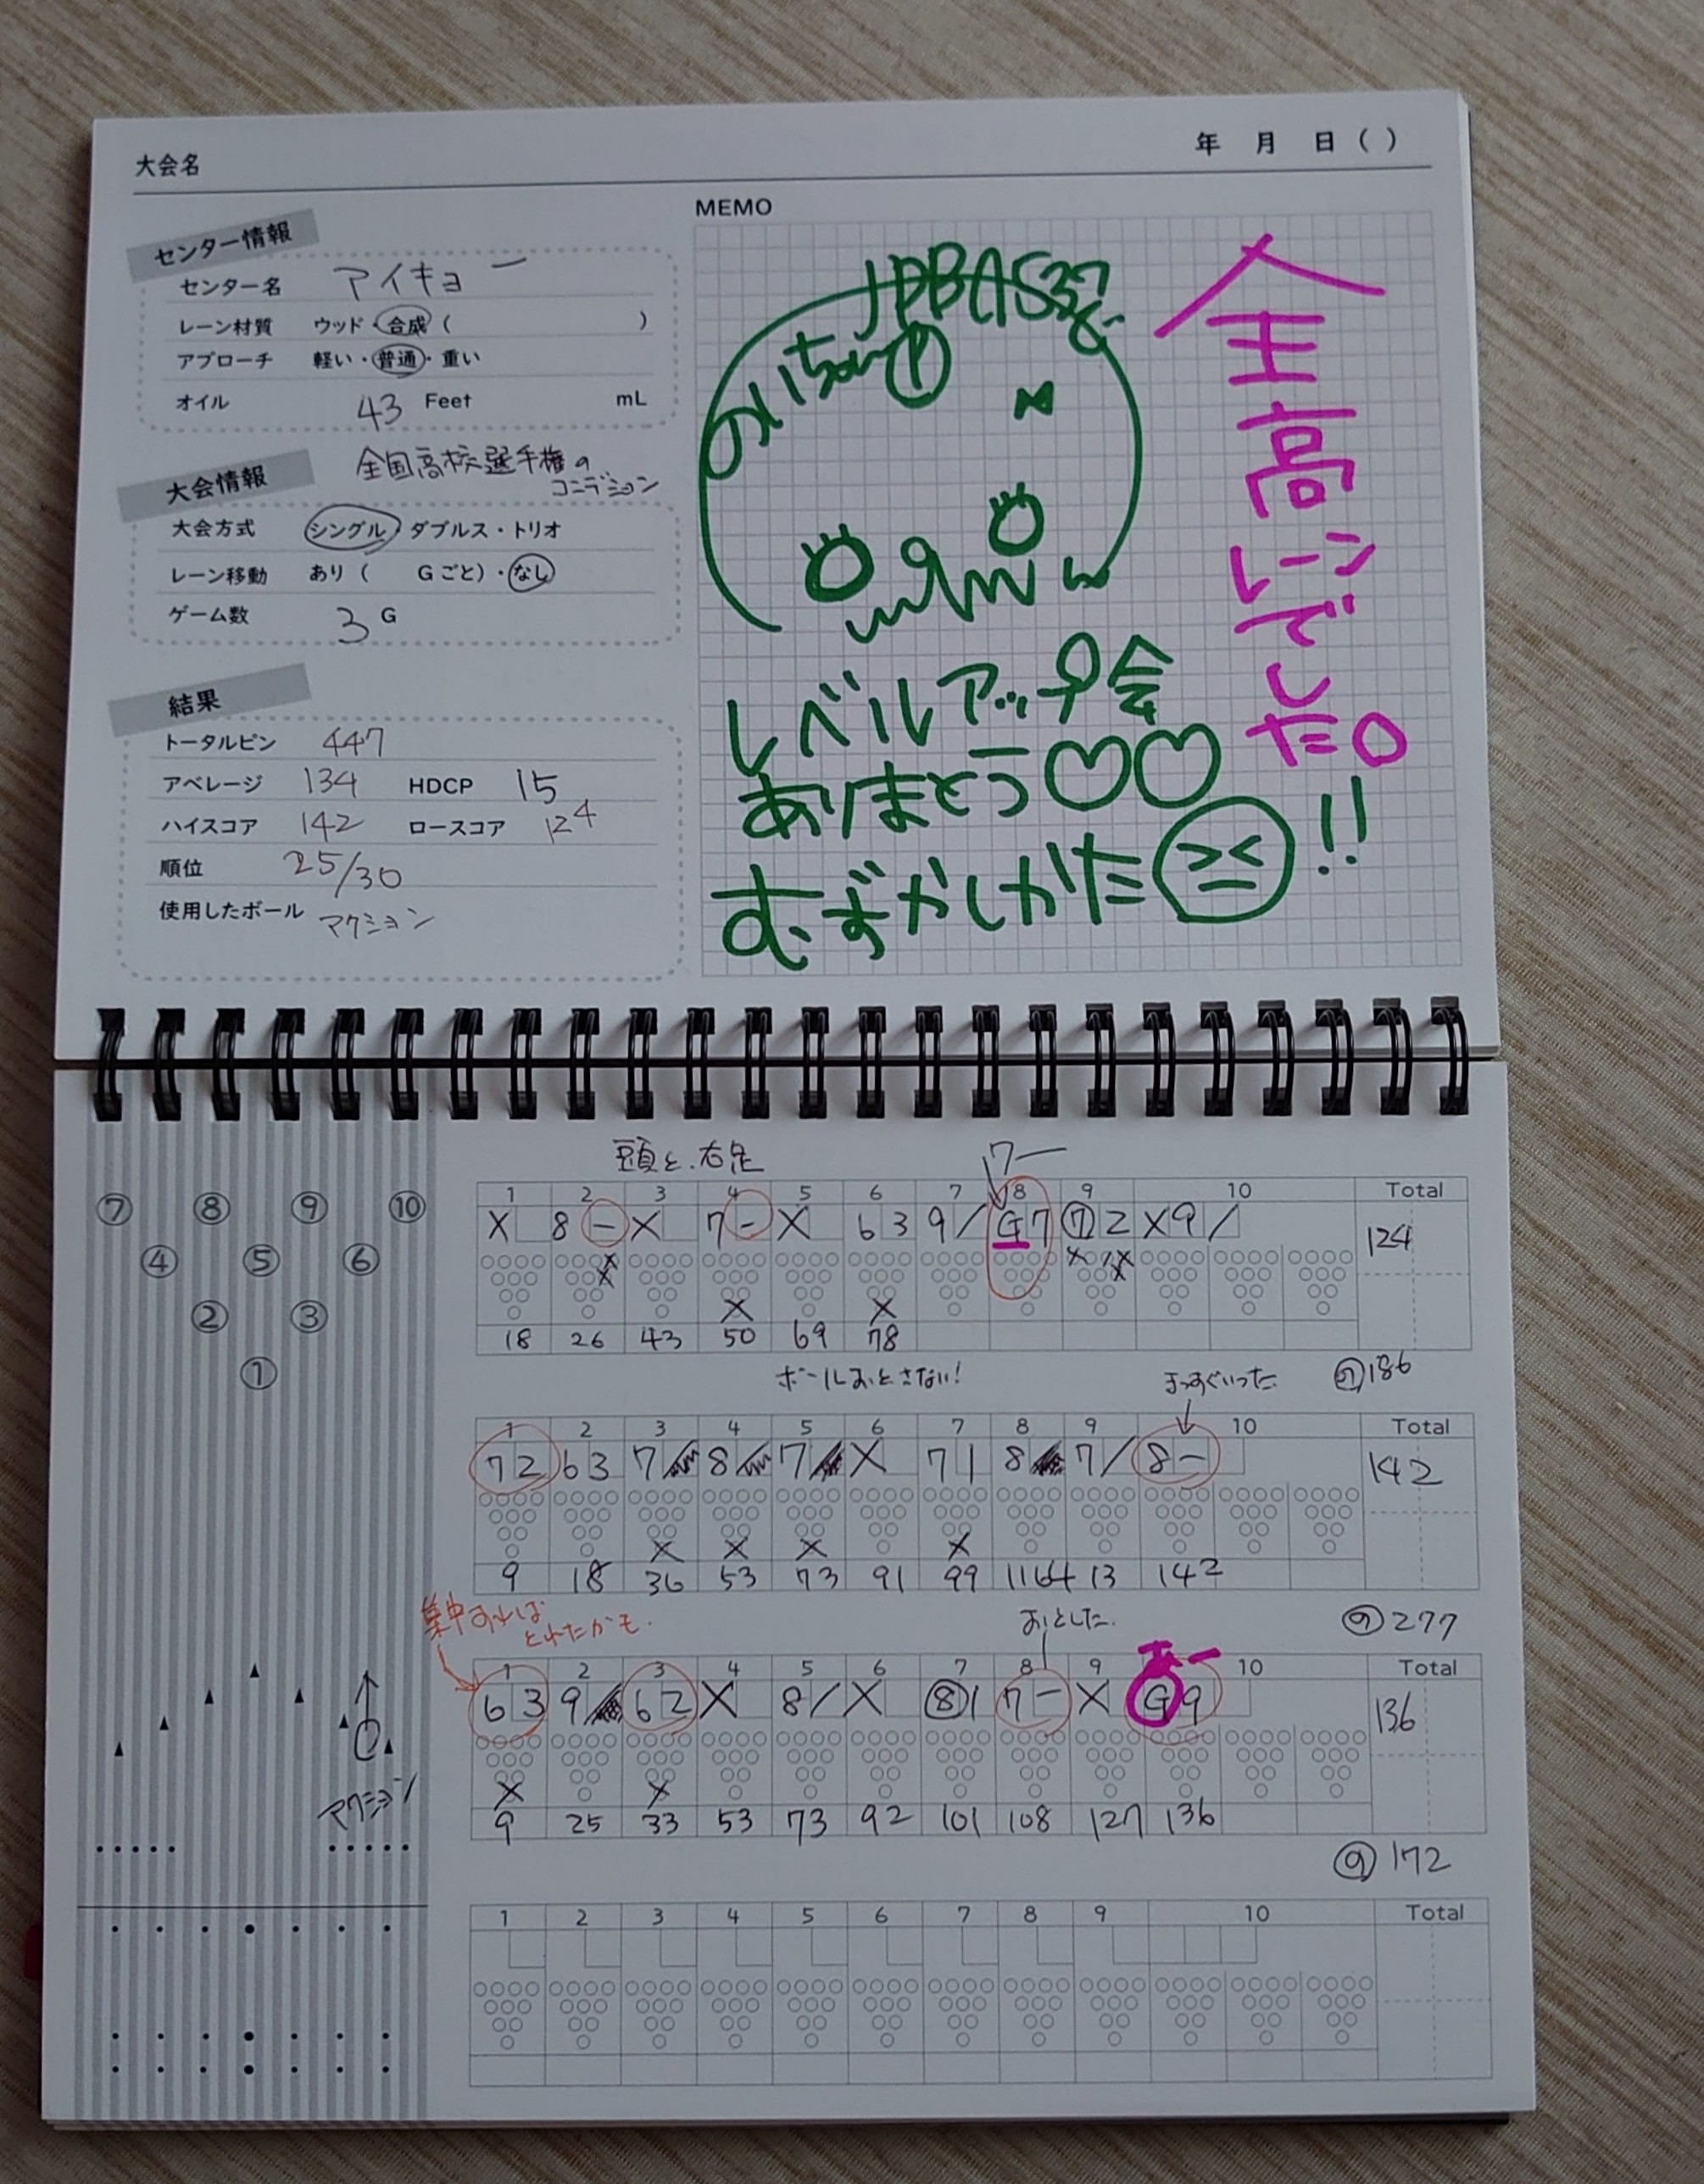 大会名
年 月 日 ( )
センター情報
センター名 アイキョー
レーン材質 ウッド・合成 ( )
アプローチ 軽い・普通・重い
オイル 43 Feet mL
全国高校選手権の
コンデション
大会情報
大会方式 シングル・ダブルス・トリオ
レーン移動 あり ( Gごと)・なし
ゲーム数 3 G
結果
トータルピン 447
アベレージ 134 HDCP 15
ハイスコア 142 ロースコア 124
順位 25/30
使用したボール マクション
MEMO
JPBA
レベルアップ会
ありまとう♡♡
むずかしかた!!
全高レーンでした。
⑦ ⑧ ⑨ ⑩
④ ⑤ ⑥
② ③
①
マクション
頭と、右足
7 ー
1 2 3 4 5 6 7 8 9 10 Total
X 8 - X 7 - X 6 3 9 / G 7 ⑦ 2 X 9 / 124
18 26 43 50 69 78
ボールおとさない!
まっすぐいった
186
1 2 3 4 5 6 7 8 9 10 Total
7 2 6 3 7 / 8 / 7 / X 7 1 8 / 7 / 8 - 142
9 18 36 53 73 91 99 116 413 142
集中すれば
とれたかも.
おとした.
277
1 2 3 4 5 6 7 8 9 10 Total
6 3 9 / 6 2 X 8 / X ⑧ 1 7 - X G 9 136
9 25 33 53 73 92 101 108 127 136
172
1 2 3 4 5 6 7 8 9 10 Total